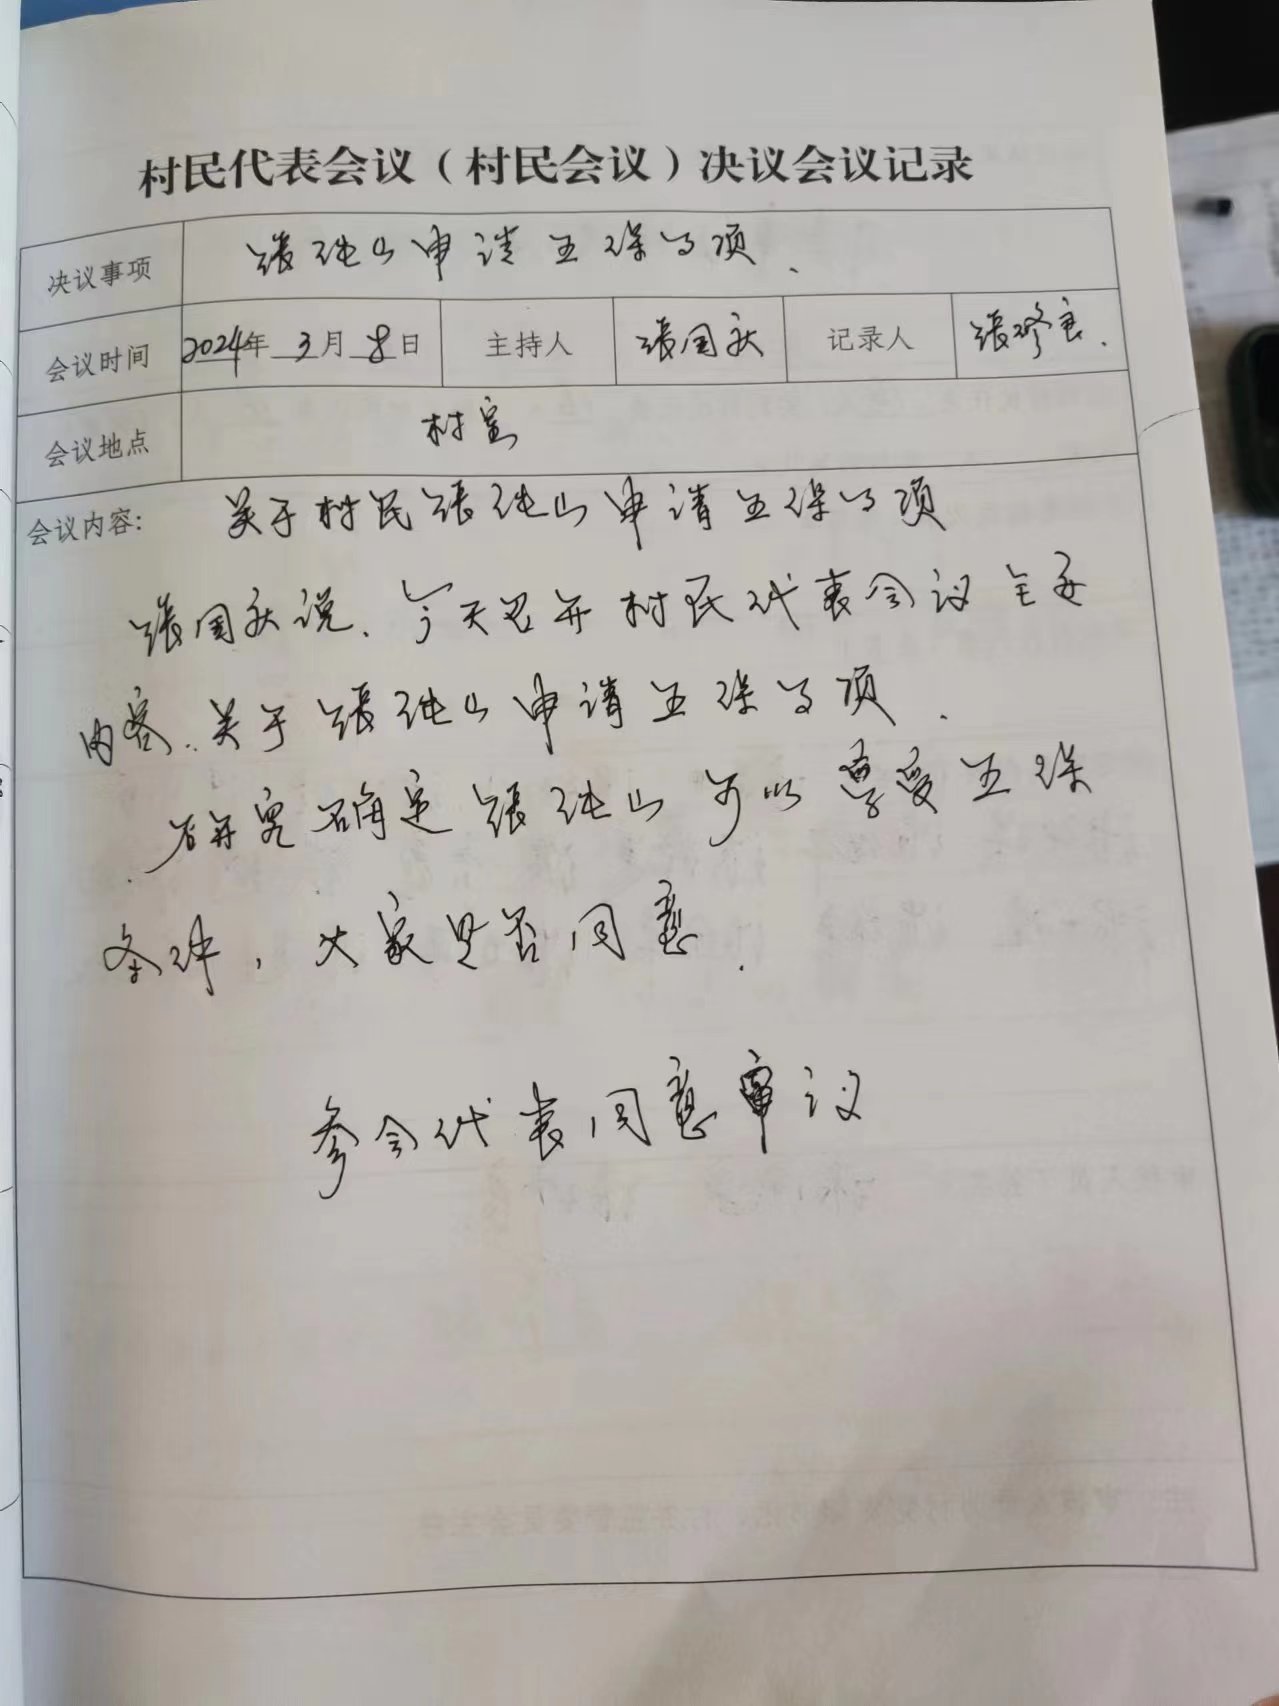 村民代表会议（村民会议）决议会议记录
决议事项 张纯山申请五保事项、
会议时间 2024年 3月 8日 主持人 张国庆 记录人 张修良.
会议地点 村室
会议内容: 关于村民张纯山申请五保事项
张国庆说、今天召开村民代表会议主要
内容.关于张纯山申请五保事项.
确定张纯山可以享受五保
条件，大家是否同意.
参会代表同意审议